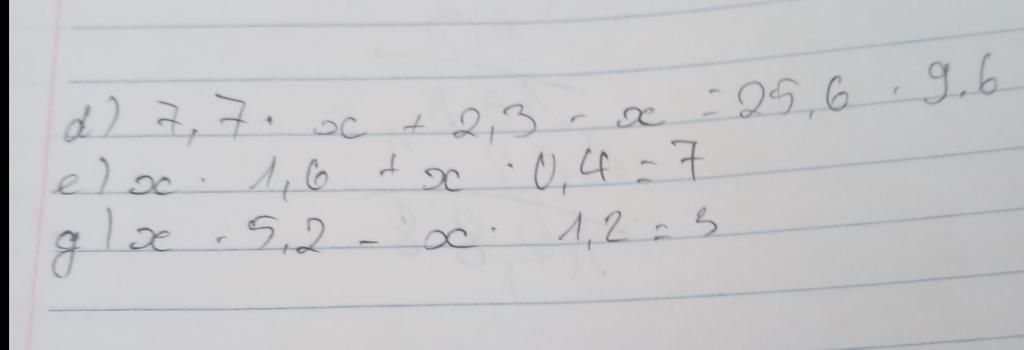 d) 7,7 · x + 2,3 - x = 25,6 · 9,6
e) x · 1,6 + x · 0,4 = 7
g) x · 5,2 - x · 1,2 = 3